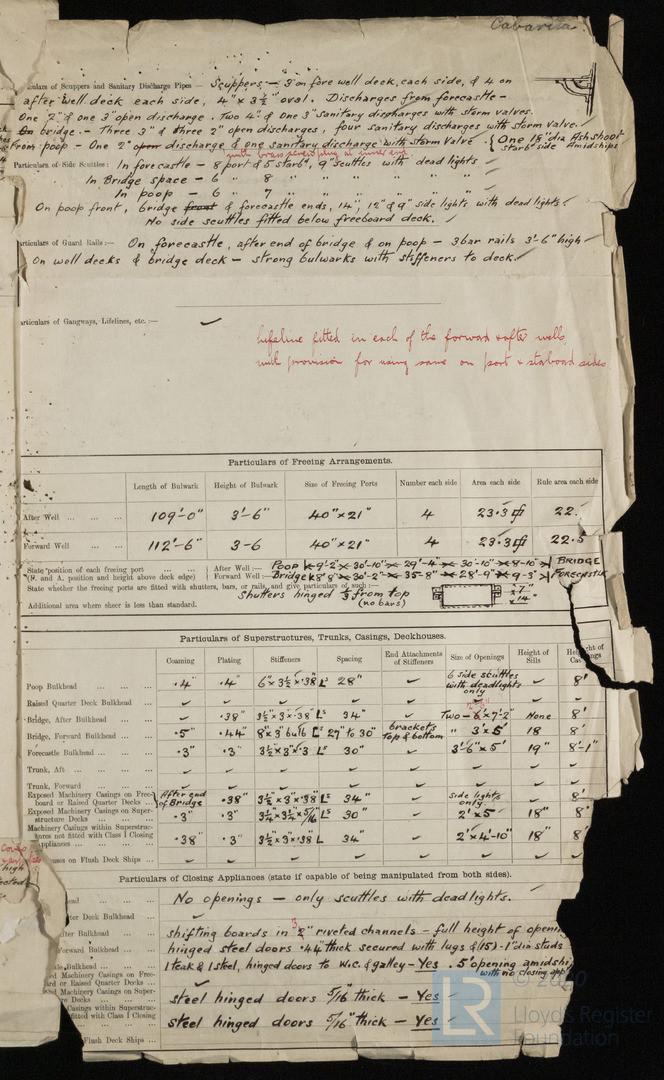 Cabarita.
culars of Scuppers and Sanitary Discharge Pipes — Scuppers — 3 on fore well deck, each side, & 4 on
after well deck each side, 4" x 3½" oval. Discharges from forecastle —
One 2" & one 3" open discharge. Two 4" & one 3" Sanitary discharges with storm valves.
bridge. — Three 3" & three 2" open discharges, four sanitary discharges with storm valve.
From poop — One 2" open discharge & one sanitary discharge with storm Valve. { One 18" dia Ash shoot
Starbd side Amidships
Particulars of Side Scuttles: In forecastle — 8 port & 5 starbd, 9" scuttles with dead lights
In Bridge space — 6 " 8 " " " " "
In poop — 6 " 7 " " " " "
On poop front, bridge front & forecastle ends, 14", 12" & 9" side lights with dead lights.
No side scuttles fitted below freeboard deck.
articulars of Guard Rails:— On forecastle, after end of bridge & on poop — 3 bar rails 3'-6" high
On well decks & bridge deck — strong bulwarks with stiffeners to deck.
articulars of Gangways, Lifelines, etc.:—
lifeline fitted in each of the forward & after wells,
with provision for using same on port & starboard sides
Particulars of Freeing Arrangements.
Length of Bulwark Height of Bulwark Size of Freeing Ports Number each side Area each side Rule area each side
After Well ... ... ... 109'-0" 3'-6" 40" x 21" 4 23.3 22.
Forward Well ... ... 112'-6" 3-6 40" x 21" 4 23.3 22.5
State position of each freeing port ... ... After Well :— Poop 9'-2" 30'-10" 29'-4" 30'-10" 8-10" BRIDGE
(F. and A. position and height above deck edge) Forward Well — Bridge 8'8" 30'-2" 35-8" 28'-9" 9-3" FORECASTLE
State whether the freeing ports are fitted with shutters, bars, or rails, and give particulars of such:—
Shutters hinged ⅓ from top
(no bars)
x 7"
x 14"
Additional area where sheer is less than standard.
Particulars of Superstructures, Trunks, Casings, Deckhouses.
Coaming Plating Stiffeners Spacing End Attachments of Stiffeners Size of Openings Height of Sills
Poop Bulkhead ... ... ... .4" .4" 6" x 3½ x .38 Ls 28" 6 side scuttles with deadlights only 8'
Raised Quarter Deck Bulkhead ...
Bridge, After Bulkhead ... ... .38" 3½" x 3 x .38" Ls 34" Two — 6' x 7'-2" None 8'
Bridge, Forward Bulkhead ... ... .5" .44" 8" x 3" bulb 27" to 30" brackets top & bottom " 3' x 5' 18 8'
Forecastle Bulkhead ... ... .3" .3" 3½ x 3" x .3 Ls 30" 3'-6" x 5' 19" 8'-1"
Trunk, Aft ... ... ... ...
Trunk, Forward ... ... ...
Exposed Machinery Casings on Free-
board or Raised Quarter Decks ... { After end of Bridge .38" 3½" x 3" x .38" Ls 34" Side lights only 8'
Exposed Machinery Casings on Super-
structure Decks ... ... .3" .3" 3¼" x 3¼" x 5/16 Ls 30" 2' x 5' 18" 8'
Machinery Casings within Superstruc-
tures not fitted with Class I Closing
Appliances ... ... .38" .3" 3½" x 3" x .38 L 34" 2' x 4'-10" 18" 8
uses on Flush Deck Ships ...
Particulars of Closing Appliances (state if capable of being manipulated from both sides).
No openings — only scuttles with deadlights.
ter Deck Bulkhead ...
fter Bulkhead ... shifting boards in 3" riveted channels — full height of openin
Forward Bulkhead ... hinged steel doors .44 thick secured with lugs & (15) — 1" dia studs
le Bulkhead ... 1 teak & 1 steel, hinged doors to W.C. & galley — Yes. 5' opening amidshi
with no closing app
Machinery Casings on Free-
rd or Raised Quarter Decks ...
Machinery Casings on Super-
Decks ... steel hinged doors 5/16" thick — Yes
Casings within Superstruc-
fitted with Class I Closing
... steel hinged doors 5/16" thick — Yes
Flush Deck Ships ...
LR
© 2020
Lloyd's Register
Foundation